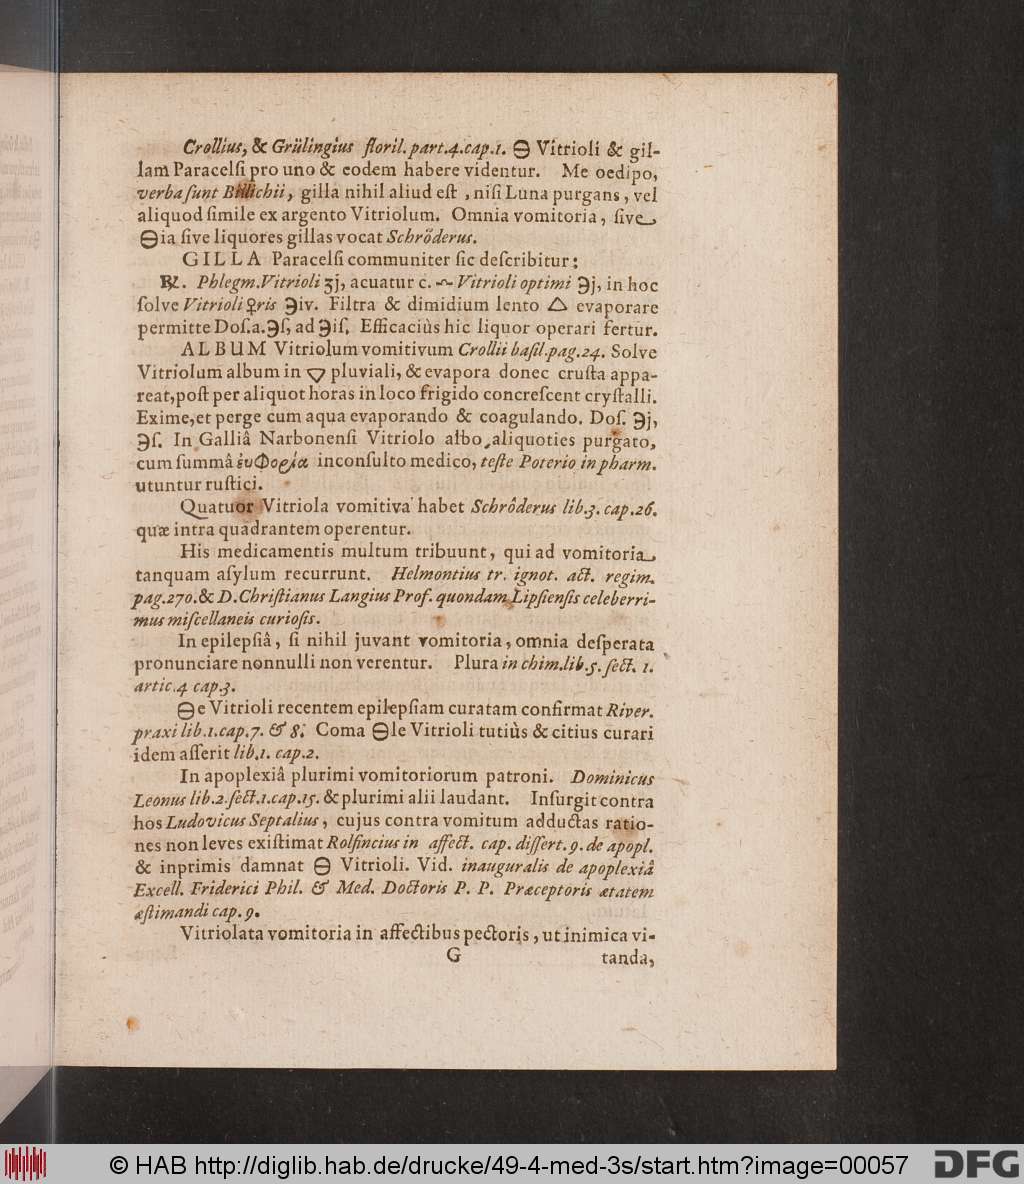 Crollius, & Grülingius floril. part. 4. cap. 1. 🜔 Vitrioli & gil-
lam Paracelſi pro uno & eodem habere videntur. Me oedipo,
verba ſunt Billichii, gilla nihil aliud eſt, niſi Luna purgans, vel
aliquod ſimile ex argento Vitriolum. Omnia vomitoria, ſive
🜔ia ſive liquores gillas vocat Schröderus.
GILLA Paracelſi communiter ſic deſcribitur:
℞. Phlegm. Vitrioli ʒj, acuatur c. Vitrioli optimi ℈j, in hoc
ſolve Vitrioli ♀ris ℈iv. Filtra & dimidium lento 🜂 evaporare
permitte Doſ. a. ℈ſ, ad ℈iſ. Efficaciùs hic liquor operari fertur.
ALBUM Vitriolum vomitivum Crollii baſil. pag. 24. Solve
Vitriolum album in 🜄 pluviali, & evapora donec cruſta appa-
reat, poſt per aliquot horas in loco frigido concreſcent cryſtalli.
Exime, et perge cum aqua evaporando & coagulando. Doſ. ℈j,
℈ſ. In Galliâ Narbonenſi Vitriolo albo, aliquoties purgato,
cum ſummâ ἐυφορίᾳ inconſulto medico, teſte Poterio in pharm.
utuntur ruſtici.
Quatuor Vitriola vomitiva habet Schrôderus lib. 3. cap. 26.
quæ intra quadrantem operentur.
His medicamentis multum tribuunt, qui ad vomitoria
tanquam aſylum recurrunt. Helmontius tr. ignot. act. regim.
pag. 270. & D. Chriſtianus Langius Prof. quondam Lipſienſis celeberri-
mus miſcellaneis curioſis.
In epilepſiâ, ſi nihil juvant vomitoria, omnia deſperata
pronunciare nonnulli non verentur. Plura in chim. lib. 5. ſect. 1.
artic. 4 cap. 3.
🜔e Vitrioli recentem epilepſiam curatam confirmat River.
praxi lib. 1. cap. 7. & 8. Coma 🜔le Vitrioli tutiùs & citius curari
idem aſſerit lib. 1. cap. 2.
In apoplexiâ plurimi vomitoriorum patroni. Dominicus
Leonus lib. 2. ſect. 1. cap. 15. & plurimi alii laudant. Inſurgit contra
hos Ludovicus Septalius, cujus contra vomitum adductas ratio-
nes non leves exiſtimat Rolfincius in affect. cap. diſſert. 9. de apopl.
& inprimis damnat 🜔 Vitrioli. Vid. inauguralis de apoplexiâ
Excell. Friderici Phil. & Med. Doctoris P. P. Præceptoris ætatem
æſtimandi cap. 9.
Vitriolata vomitoria in affectibus pectoris, ut inimica vi-
G tanda,
© HAB http://diglib.hab.de/drucke/49-4-med-3s/start.htm?image=00057 DFG